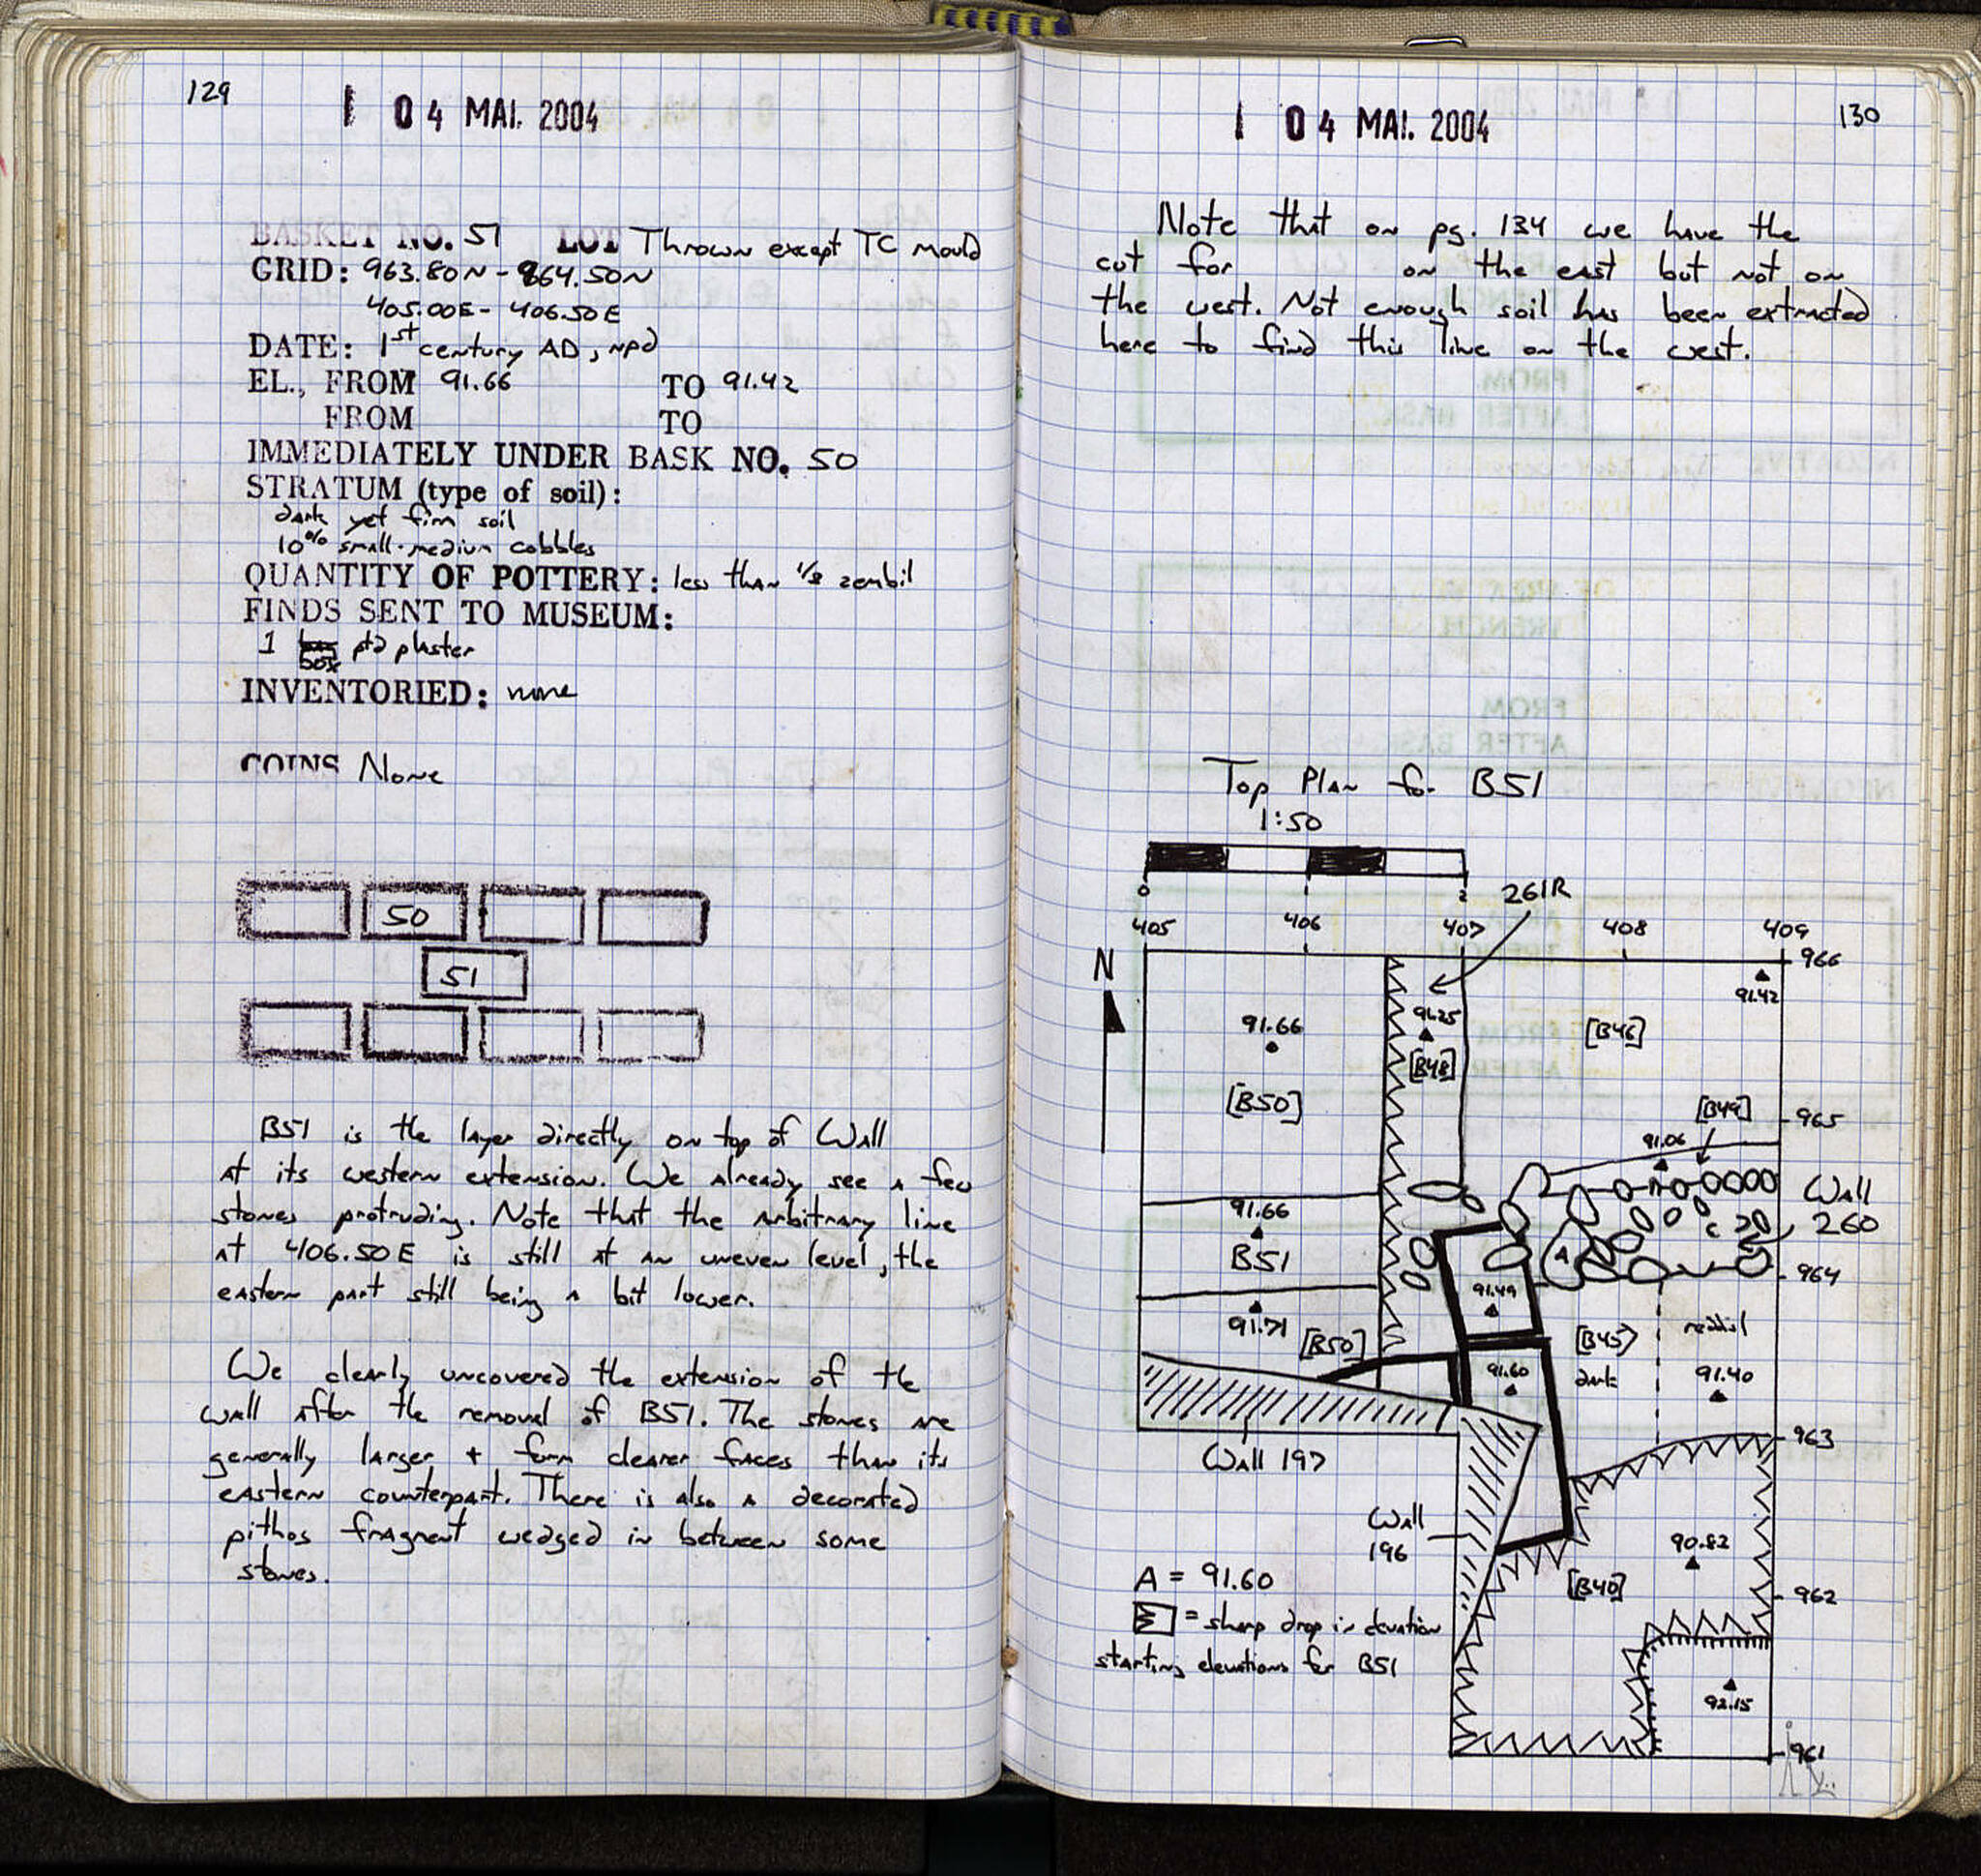 129
04 MAI. 2004
BASKET NO. 51 LOT Thrown except TC mould
GRID: 963.80N - 964.50N
405.00E - 406.50E
DATE: 1st century AD, npd
EL., FROM 91.66 TO 91.42
FROM TO
IMMEDIATELY UNDER BASK NO. 50
STRATUM (type of soil):
dark yet firm soil
10% small-medium cobbles
QUANTITY OF POTTERY: less than 1/8 zembil
FINDS SENT TO MUSEUM:
1 box ptd plaster
INVENTORIED: none
COINS None
50
51
B51 is the layer directly on top of Wall
at its western extension. We already see a few
stones protruding. Note that the arbitrary line
at 406.50E is still at an uneven level, the
eastern part still being a bit lower.
We clearly uncovered the extension of the
wall after the removal of B51. The stones are
generally larger + form clearer faces than its
eastern counterpart. There is also a decorated
pithos fragment wedged in between some
stones.
04 MAI. 2004
130
Note that on pg. 134 we have the
cut for on the east but not on
the west. Not enough soil has been extracted
here to find this line on the west.
Top Plan for B51
1:50
0 2
261R
405 406 407 408 409
N
966
91.42
91.66
91.25
[B46]
[B48]
[B50]
[B49]
965
91.06
Wall
260
91.66
B51
A
964
91.49
91.71
[B50]
[B45]
reddish
91.60
dark
91.40
963
Wall 197
Wall
196
90.82
[B40]
962
A = 91.60
= sharp drop in elevation
starting elevations for B51
92.15
961